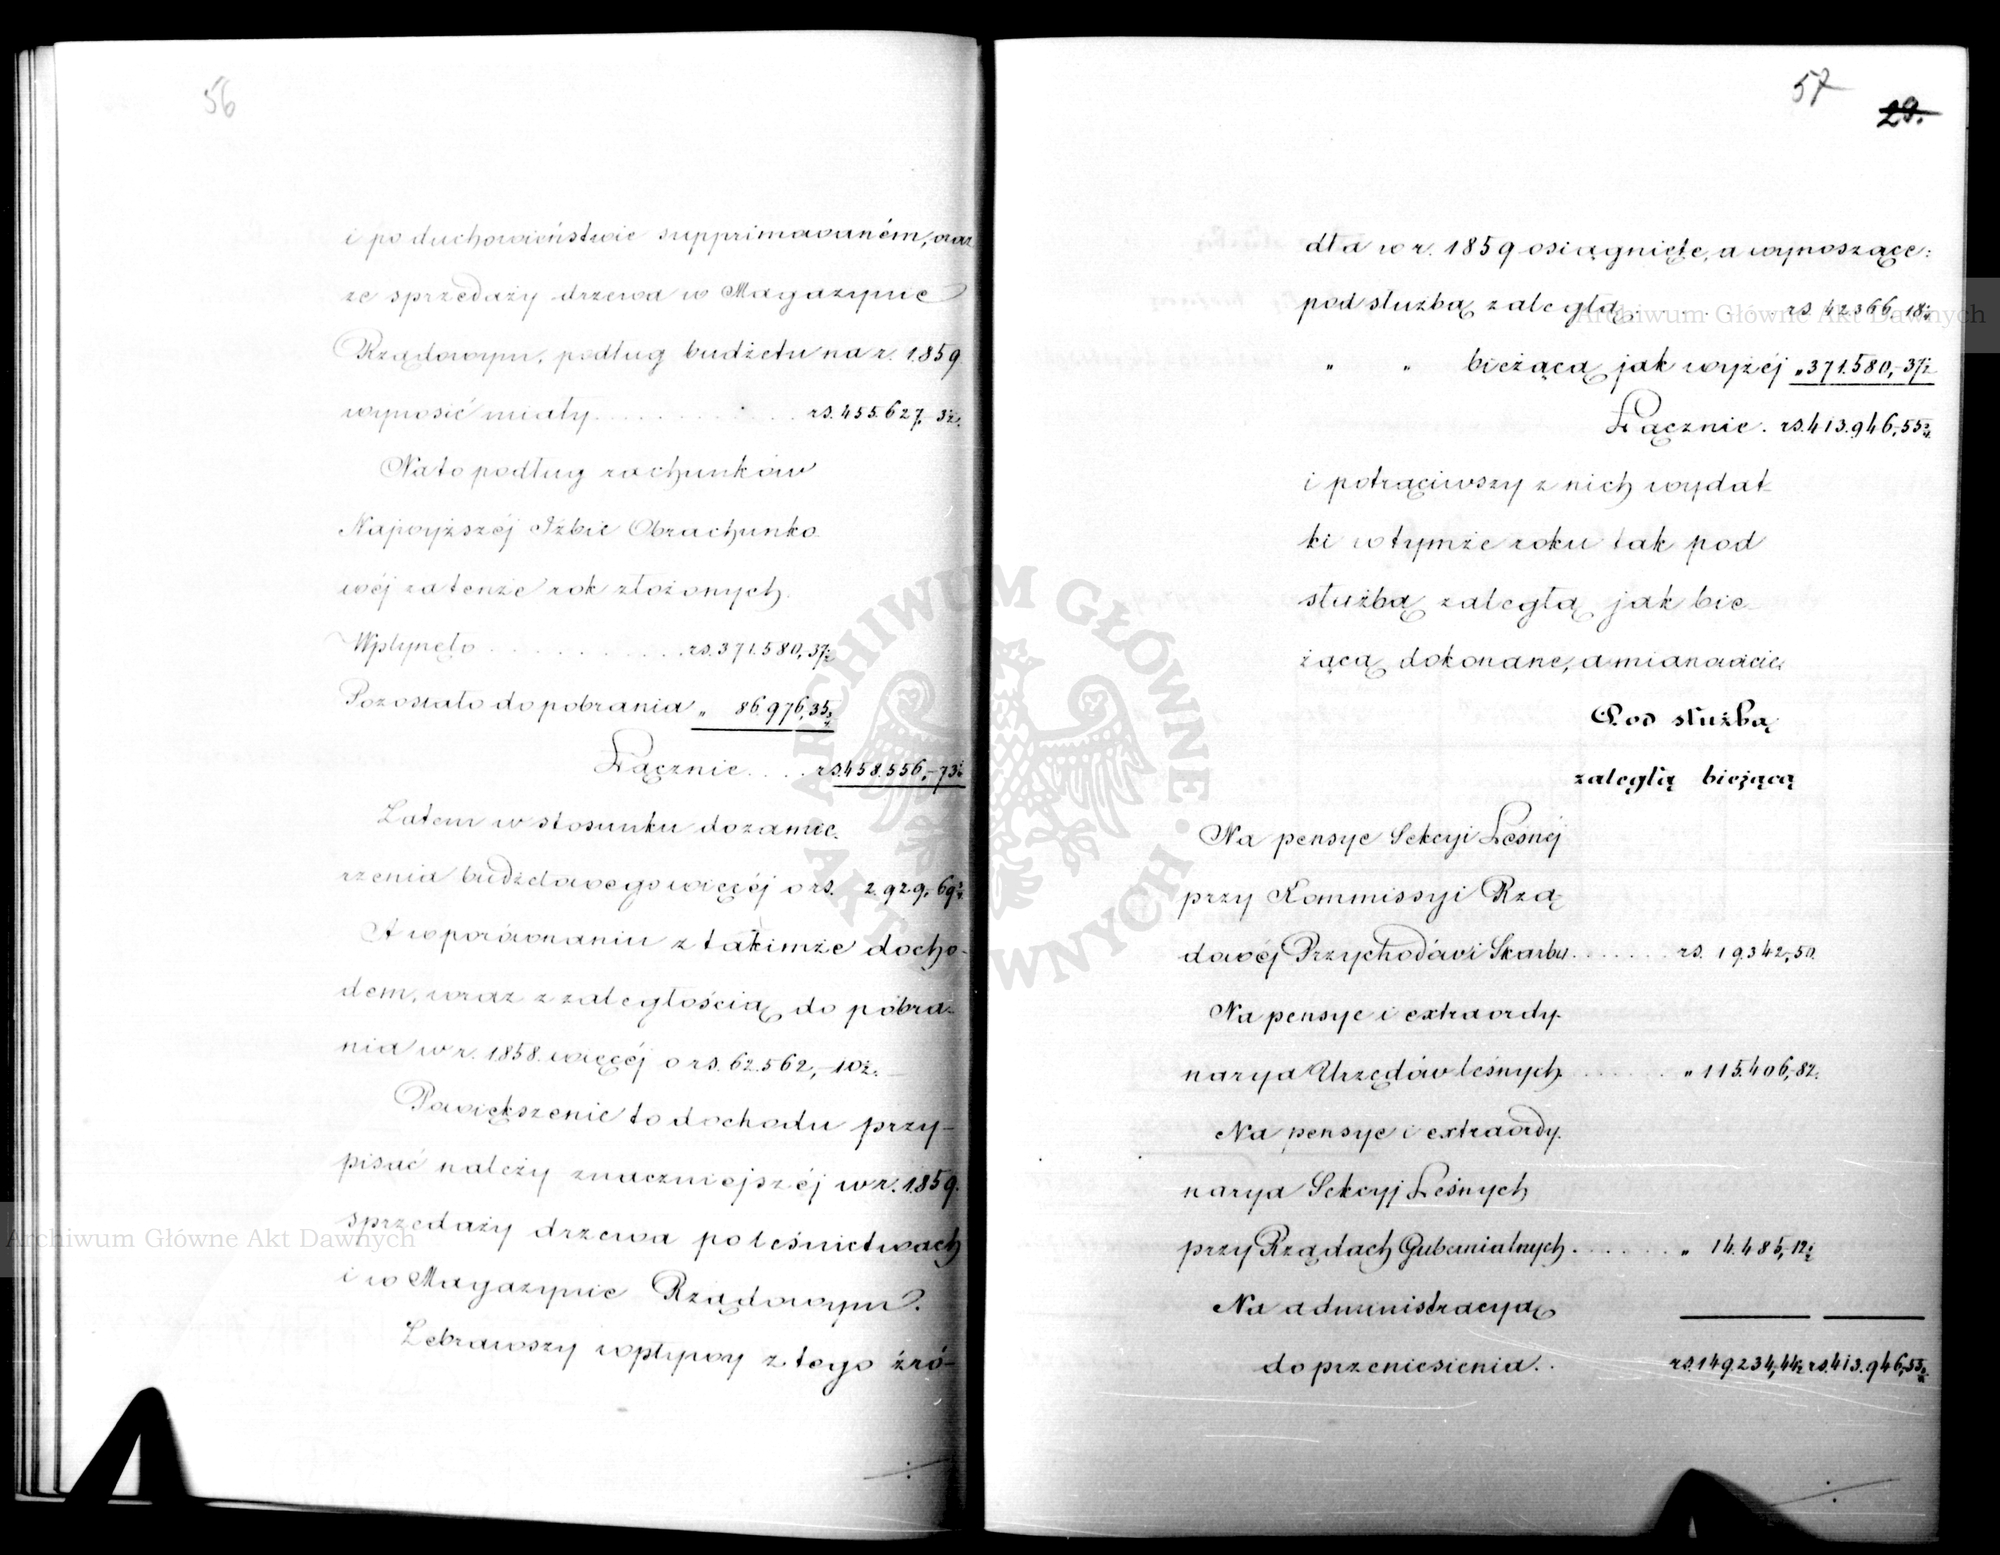 56
i po duchowieństwie supprimowaném, oraz
ze sprzedaży drzewa w Magazynie
Rządowym, podług budżetu na r. 1859
wynosić miały . . . . . . . . . . rs. 455.627,-3½.
Na to podług rachunków
Najwyższéj Izbie Obrachunko-
wéj za tenże rok złożonych.
Wpłynęło . . . . . . . . . . rs. 371.580,37½
Pozostało do pobrania „ 86.976,35¾
Łącznie . . . . rs. 458.556,-73¼
Zatem w stosunku do zamie-
rzenia budżetowego więcéj o rs. 2.929,-69¾
A w porównaniu z takimże docho-
dem, wraz z zaległością do pobra-
nia w r. 1858. więcéj o rs. 62.562,-10½.
Powiększenie to dochodu przy-
pisać należy znaczniejszéj w r. 1859.
sprzedaży drzewa po leśnictwach
i w Magazynie Rządowym.
Zebrawszy wpływy z tego źró-
57
29.
dła w r. 1859 osiągnięte, a wynoszące:
pod służbą zaległą . . . . . . . . rs. 42366,-18¼
„ „ bieżącą jak wyżéj „ 371.580,-37½
Łącznie . rs. 413.946,-55¾
i potrąciwszy z nich wydat-
ki w tymże roku tak pod
służbą zaległą jak bie-
żącą dokonane, a mianowicie
Pod służbą
zaległą bieżącą
Na pensye Sekcyi Leśnéj
przy Kommissyi Rzą-
dowéj Przychodów i Skarbu . . . . . . rs. 19.342,-50.
Na pensye i extraordy-
narya Urzędów leśnych . . . . . . „ 115.406,-82.
Na pensye i extraordy-
narya Sekcyj Leśnych
przy Rządach Gubernialnych . . . . . . „ 14.485,-12½
Na administracyą
do przeniesienia . . rs. 149.234,44½ rs. 413.946,-55¾
Archiwum Główne Akt Dawnych
Archiwum Główne Akt Dawnych